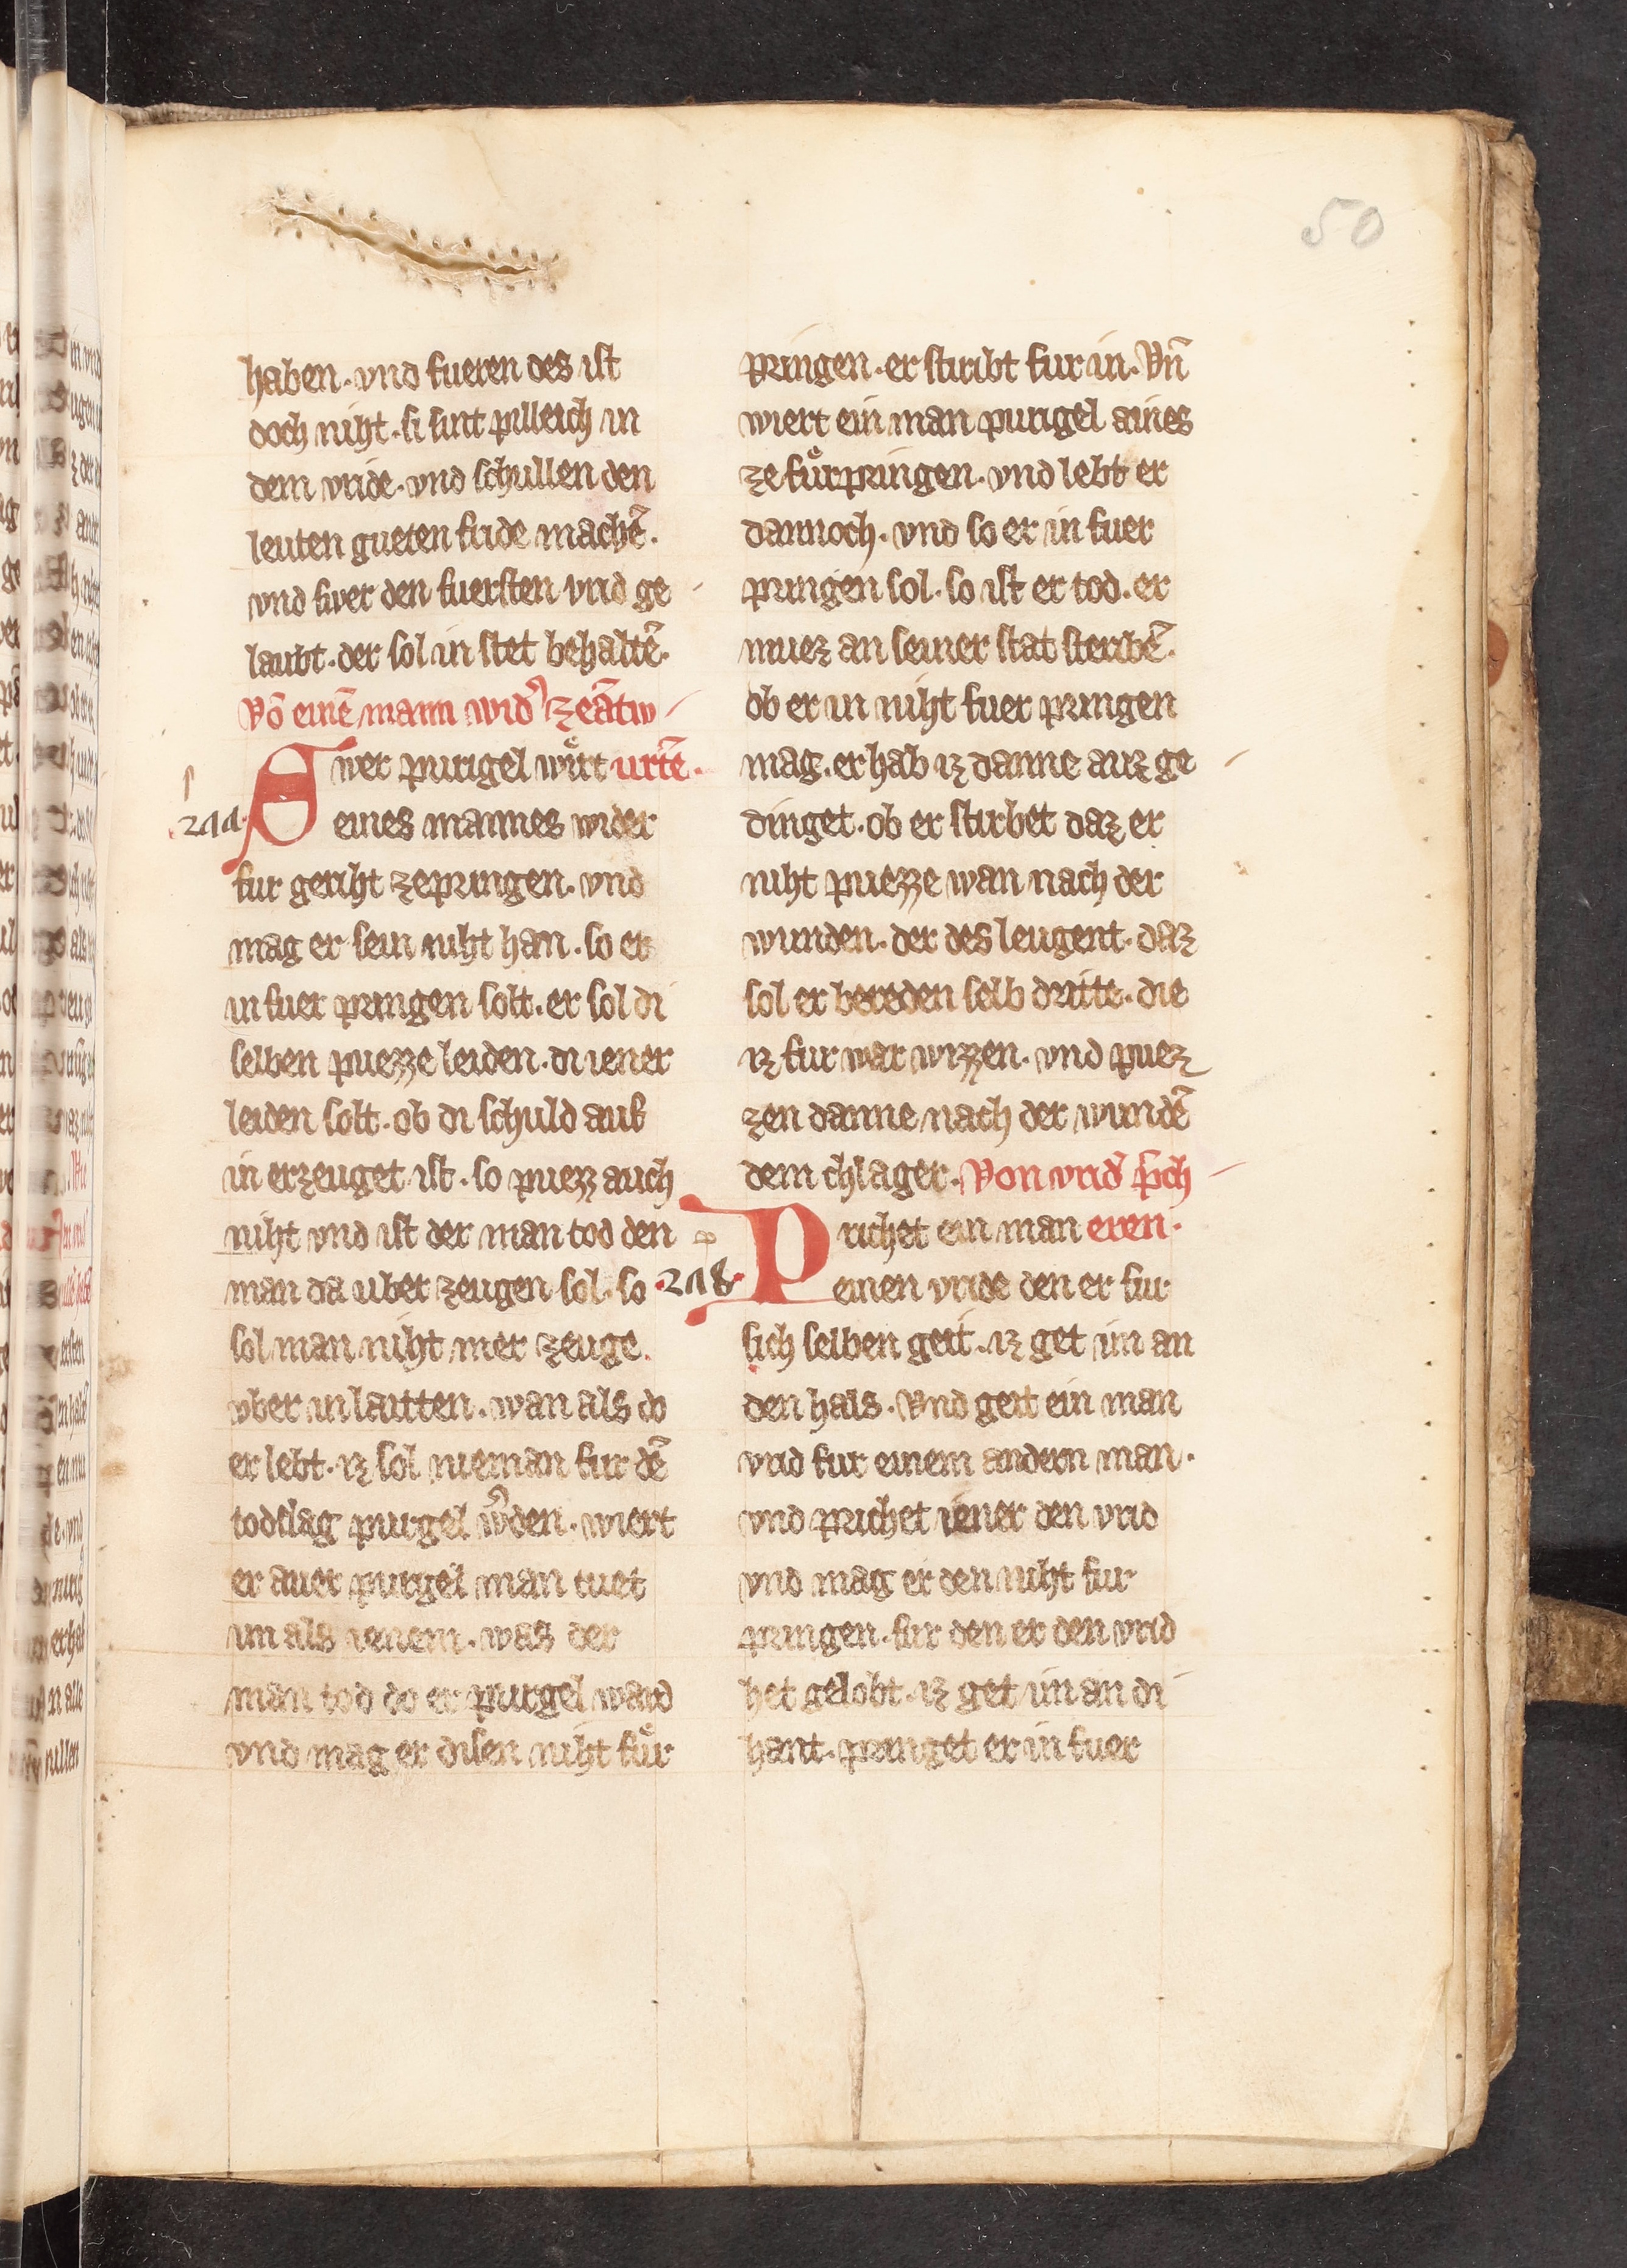 50
haben. vnd fueren des ist
doch niht. si sint pilleich in
dem vride. vnd schullen den
leuten gueten fride machẽ.
vnd swer den fuersten vrid ge-
laubt. der sol in stet behaltẽ.
Võ einẽ mann wid᷒ zeãtw-
urtẽ.
Swer purigel wuͤrt
eines mannes wider
fur geriht zepringen. vnd
mag er sein niht han. so er
in fuer pringen solt. er sol di
selben puezze leiden. di iener
leiden solt. ob di schuld auf
in erzeuget ist. so puezz auch
niht vnd ist der man tod den
man da uber zeugen sol. so
sol man niht mer zeuge.
vber in laitten. wan als do
er lebt. iz sol nieman fur dẽ
todslag purgel w᷒den. wiert
er auer purgel man tuet
im als ienem. was der
man tod do er purgel ward
vnd mag er disen niht fuͤr
pringen. er stiribt fur in. Vñ
wiert ein man purigel aines
ze fuͤrpringen. vnd lebt er
dannoch. vnd so er in fuer
pringen sol. so ist er tod. er
muez an seiner stat steribẽ.
ob er in niht fuer pringen
mag. er hab iz danne auz ge-
dinget. ob er stirbet daz er
niht puezze wan nach der
wunden. der des leugent. daz
sol er bereden selb dritte. die
iz fur war wizzen. vnd puez
zen danne nach der wundẽ
dem chlager. Von vrid prich-
eren.
Prichet ein man
einen vride den er fur
sich selben geit. iz get im an
den hals. Vnd geit ein man
vrid fur einem andern man.
vnd prichet iener den vrid
vnd mag er den niht fur
pringen. fur den er den vrid
het gelobt. iz get im an di
hant. pringet er in fuer